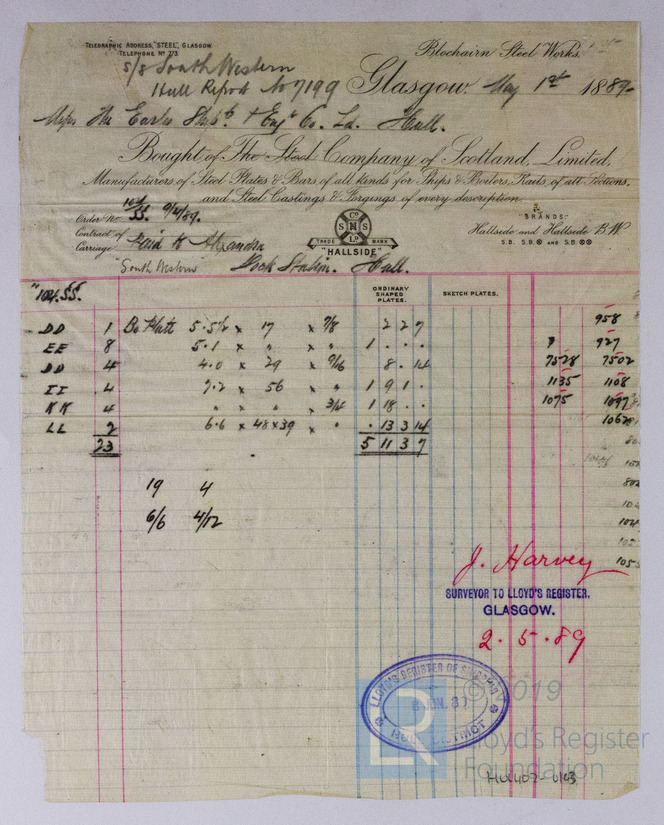 TELEGRAPHIC ADDRESS, "STEEL", GLASGOW.
TELEPHONE No 773.
Blochairn Steel Works.
S/S South Western
Hull Report No 7199
Glasgow. May 1st 1889
Messrs The Earles Shipbg & Engg Co. Ld. Hull.
Bought of The Steel Company of Scotland, Limited,
Manufacturers of Steel Plates & Bars of all kinds for Ships & Boilers, Rails, of all Sections,
and Steel Castings & Forgings of every description.
Order No 104/SS. 9/4/89.
Contract of
Carriage Paid to Alexandra
"South Western Dock Station. Hull.
STEEL Co OF SCOTLAND LD
TRADE MARK
"HALLSIDE"
"BRANDS"
Hallside and Hallside B.W.
S.B. S.B. AND S.B.
"104.SS."
ORDINARY SHAPED PLATES.
SKETCH PLATES.
DD 1 Bo Plate 5.5½ x 17 x 7/8 2 2 7 958
EE 8 5.1 x " x " 1 . . . 927
DD 4 4.0 x 29 x 9/16 . 8 . 14 7528 7502
II 4 7.2 x 56 x " 1 9 1 . 1135 1108
KK 4 " x " x 3/4 1 18 . . 1075 1097
LL 2 6.6 x 48x39 x " . 13 3 14 1067
23 5 11 3 7
19 4
6/6 4/12
J. Harvey
SURVEYOR TO LLOYD'S REGISTER.
GLASGOW.
2.5.89
LLOYD'S REGISTER OF SHIPPING
HULL DISTRICT
© 2019
Lloyd's Register
Foundation
HUL407-0143